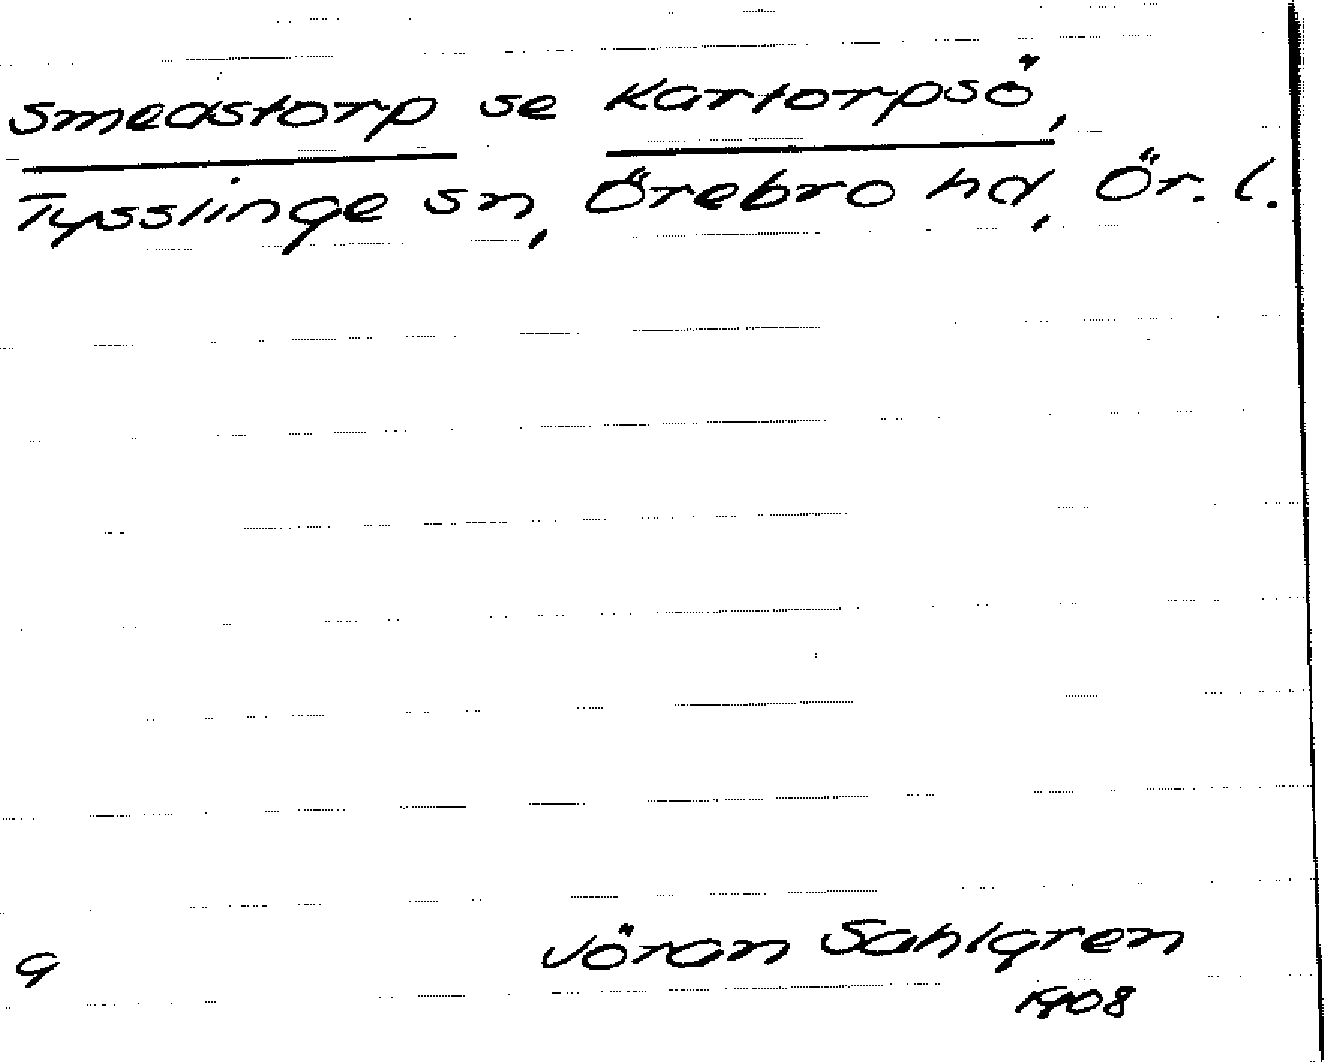 Smedstorp se Kartorpsö,
Tysslinge sn, Örebro hd, Ör. l.
Jöran Sahlgren
9
1908